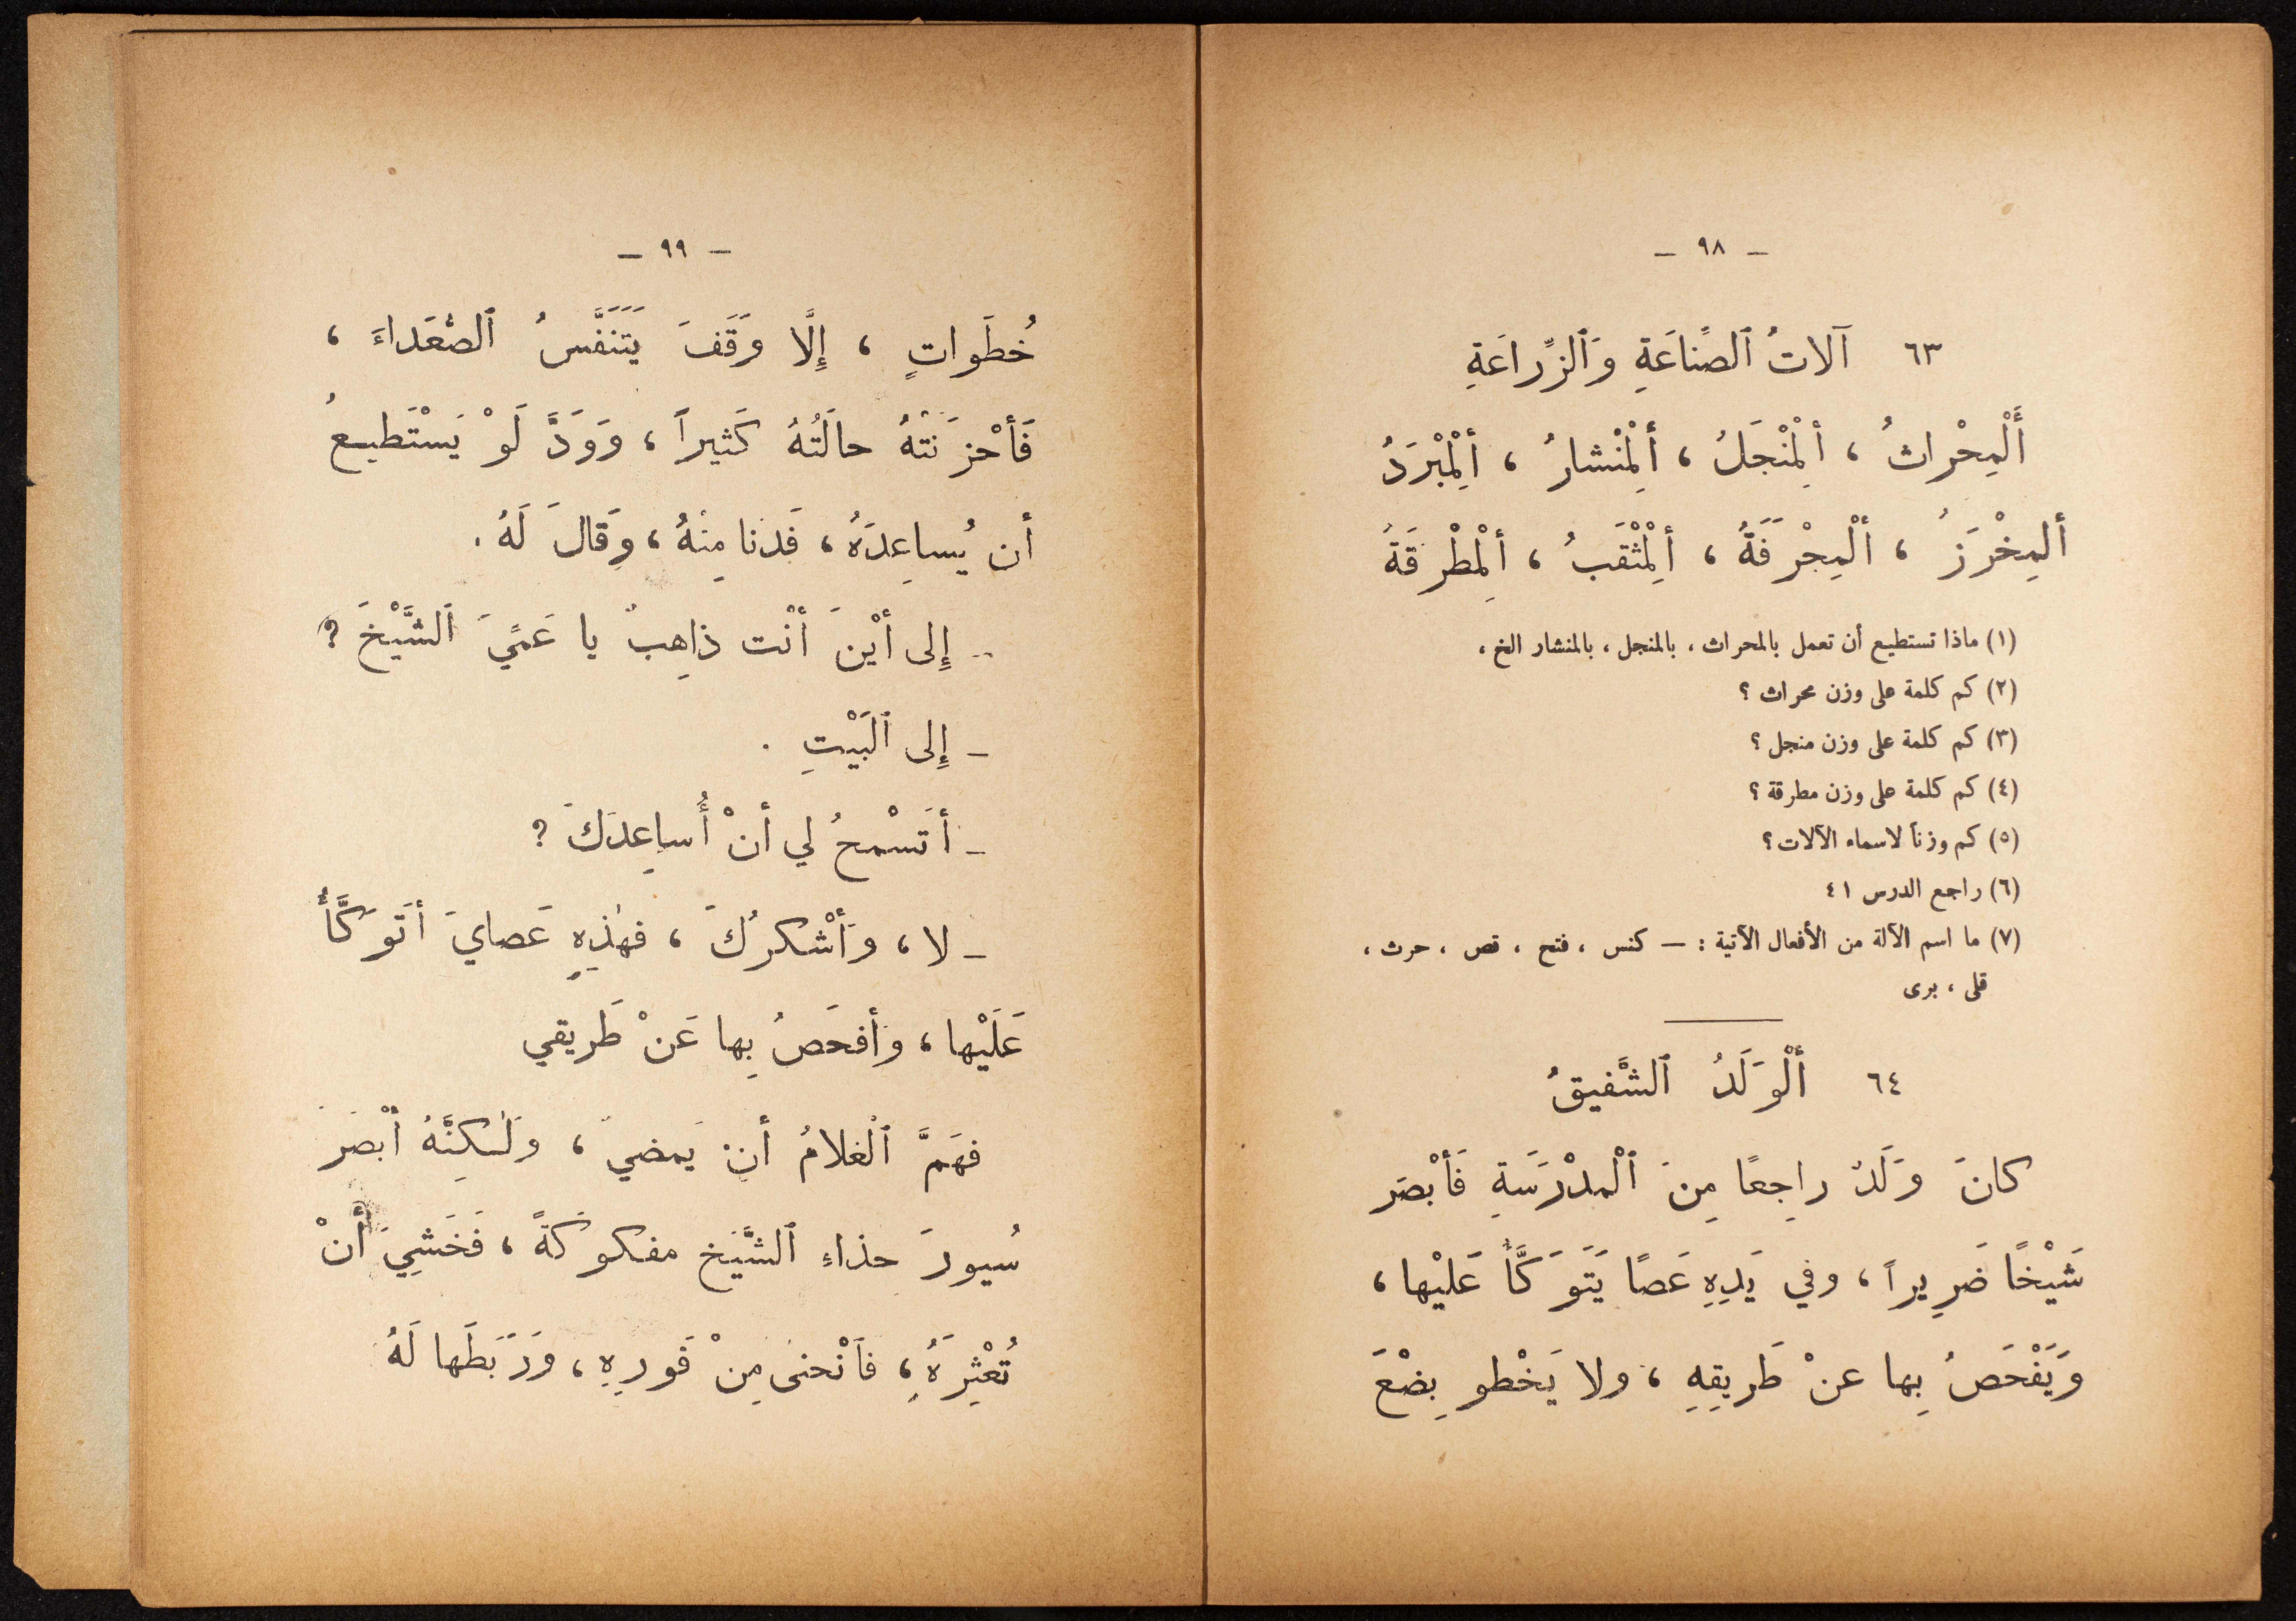 — ٩٨ —
٦٣ آلاتُ ٱلصِّناعَةِ وَٱلزِّراعَةِ
أَلْمِحْراثُ ، أَلْمِنْجَلُ ، أَلْمِنْشارُ ، أَلْمِبْرَدُ
ألمِخْرَزُ ، ألْمِجْرَفَةُ ، أَلْمِثْقَبُ ، ألْمِطْرَقَةُ
(١) ماذا تستطيع أن تعمل بالمحراث ، بالمنجل ، بالمنشار الخ ،
(٢) كم كلمة على وزن محراث ؟
(٣) كم كلمة على وزن منجل ؟
(٤) كم كلمة على وزن مطرقة ؟
(٥) كم وزناً لاسماء الآلات ؟
(٦) راجع الدرس ٤١
(٧) ما اسم الآلة من الأفعال الآتية : — كنس ، فتح ، قص ، حرث ،
قلى ، برى
٦٤ أَلْوَلَدُ ٱلشَّفيقُ
كانَ وَلَدٌ راجِعًا مِنَ ٱلْمدْرَسَةِ فَأَبْصَر
شَيْخًا ضَرِيراً ، وفي يَدِهِ عَصًا يَتَوَكَّأُ عَليْها ،
وَيَفْحَصُ بِها عنْ طَريقِهِ ، ولا يَخْطو بِضْعَ
— ٩٩ —
خُطَواتٍ ، إِلَّا وَقَفَ يَتَنَفَّسُ ٱلصُّعَداءَ ،
فَأحْزَنَتْهُ حالَتُهُ كَثيراً ، وَوَدَّ لَوْ يَسْتَطيعُ
أن يُساعِدَهُ ، فَدَنا مِنْهُ ، وَقالَ لَهُ .
– إِلى أيْنَ أنْت ذاهِبٌ يا عَمِّيَ ٱلشَّيْخَ ؟
– إِلى ٱلْبَيْتِ .
– أتَسْمحُ لي أنْ أُساعِدَكَ ؟
– لا ، وَأَشْكرُكَ ، فهٰذِهِ عَصايَ أتَوَكَّأُ
عَلَيْها ، وَأفحَصُ بِها عَنْ طَريقي
فهَمَّ ٱلْغلامُ أنْ يَمضيَ ، ولٰكِنَّهُ أبْصَرَ
سُيورَ حذاءِ ٱلشَّيْخ مفكوكَةً ، فَخَشِيَ أَنْ
تُعْثِرَهُ ، فاَنْحنى مِنْ فَورِهِ ، وَرَبَطَها لَهُ